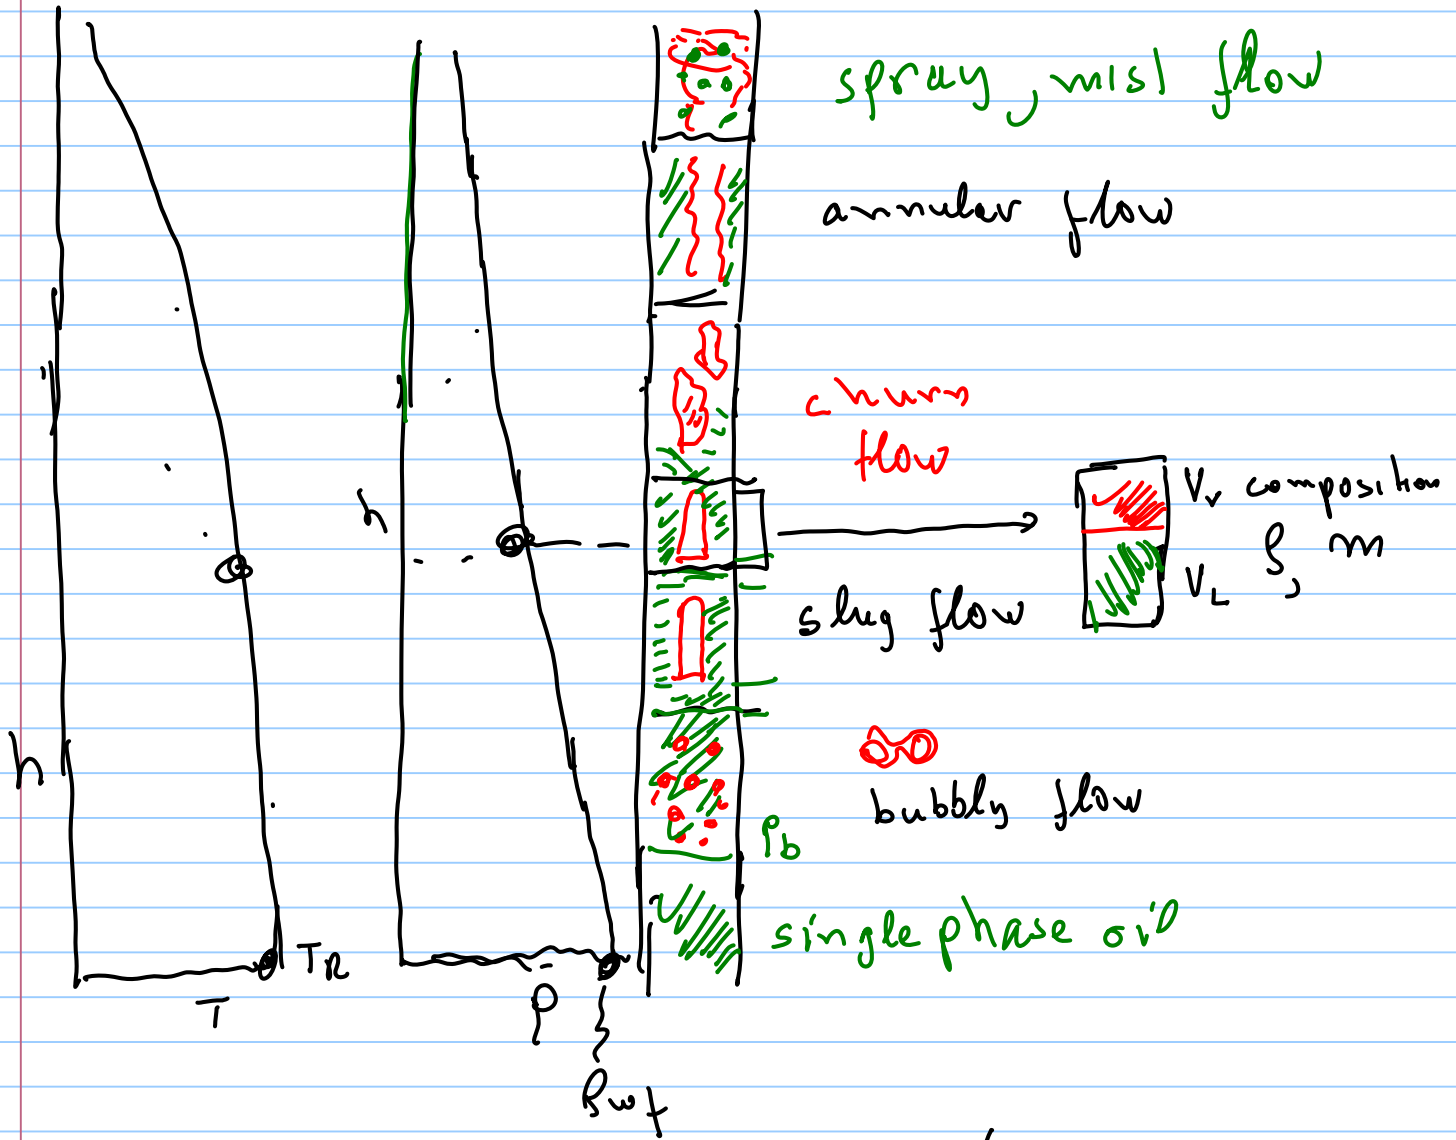 spray, mist flow
annular flow
churn
flow
h
V_v composition
ρ, m
V_L
slug flow
h
bubbly flow
P_b
single phase oil
T_R
T
P
P_wf